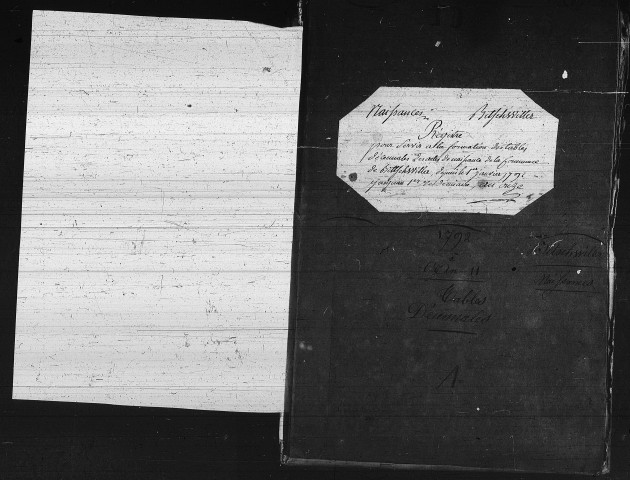 Naissances Bitschwiller
Registre
pour servir a la formation des tables
décennales des actes de naissance de la Commune
de Bitschwiller, depuis le 1er janvier 1793
jusqu'au 1er Vendémiaire, an onze
1793
an 11
Bitschwiller
Naissances
Tables
Décennales
1